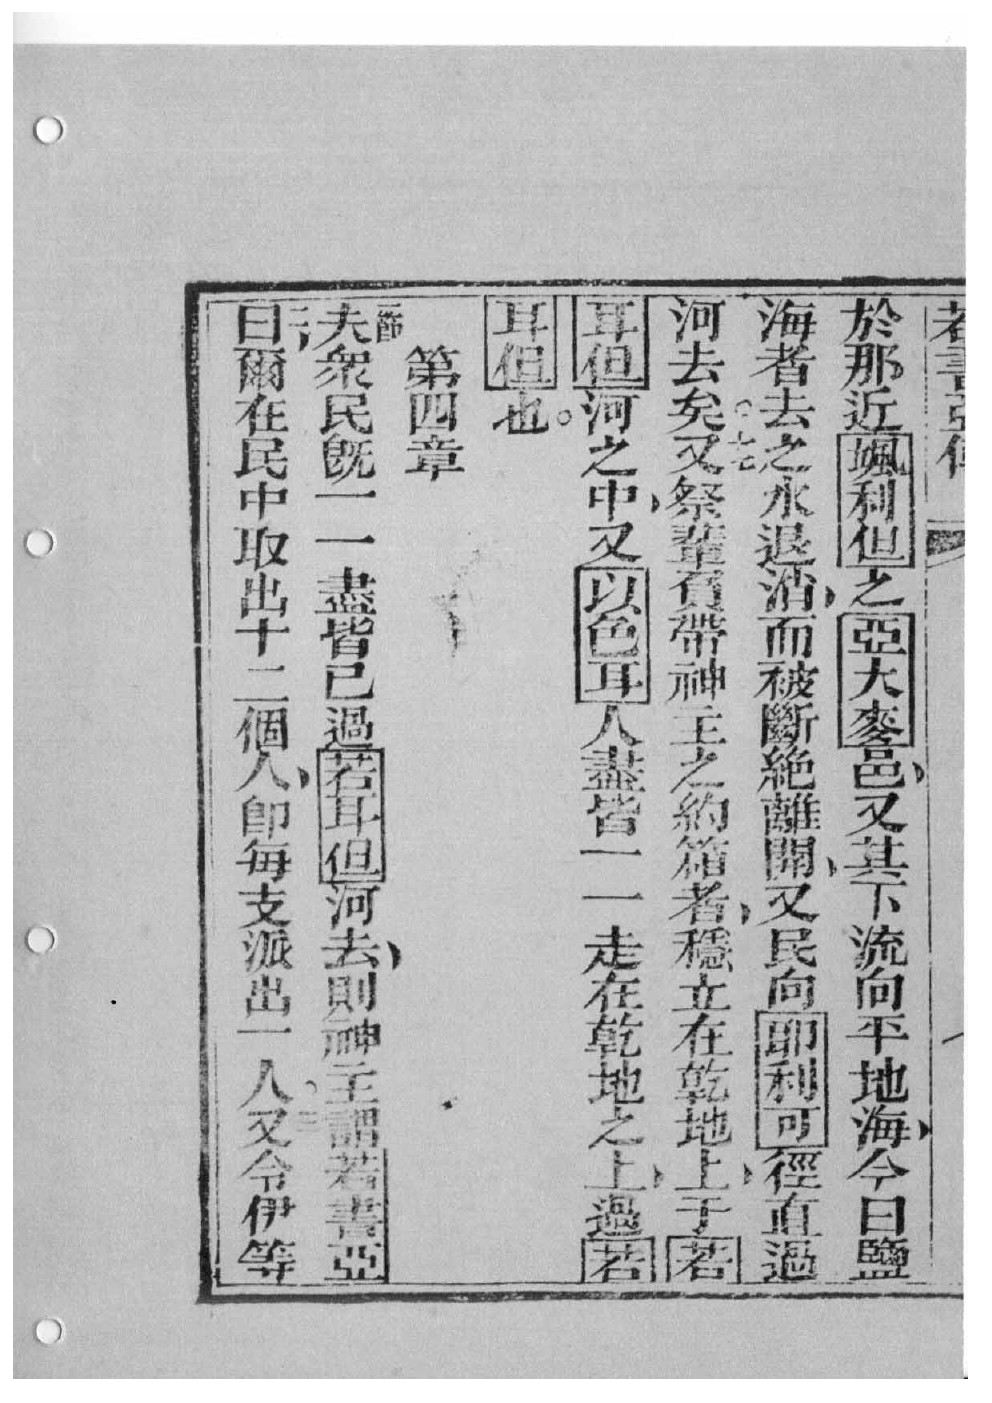 若書亞傳
於那近颯利但之亞大麥邑、又其下流向平地海、今曰鹽
海者去之水退消、而被斷絶離開、又民向耶利可徑直過
河去矣。十七又祭輩負帶神主之約箱者、穩立在乾地上、于若
耳但河之中、又以色耳人盡皆一一走在乾地之上、過若
耳但也。
第四章
一節夫衆民旣一一盡皆已過若耳但河去、則神主謂若書亞
曰、二爾在民中取出十二個人、卽每支派出一人。三又令伊等